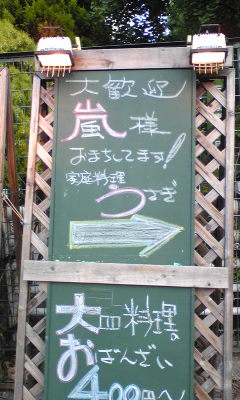 大歓迎
嵐様
おまちしてます!
家庭料理
うさぎ
大皿料理。
おばんざい
400円〜